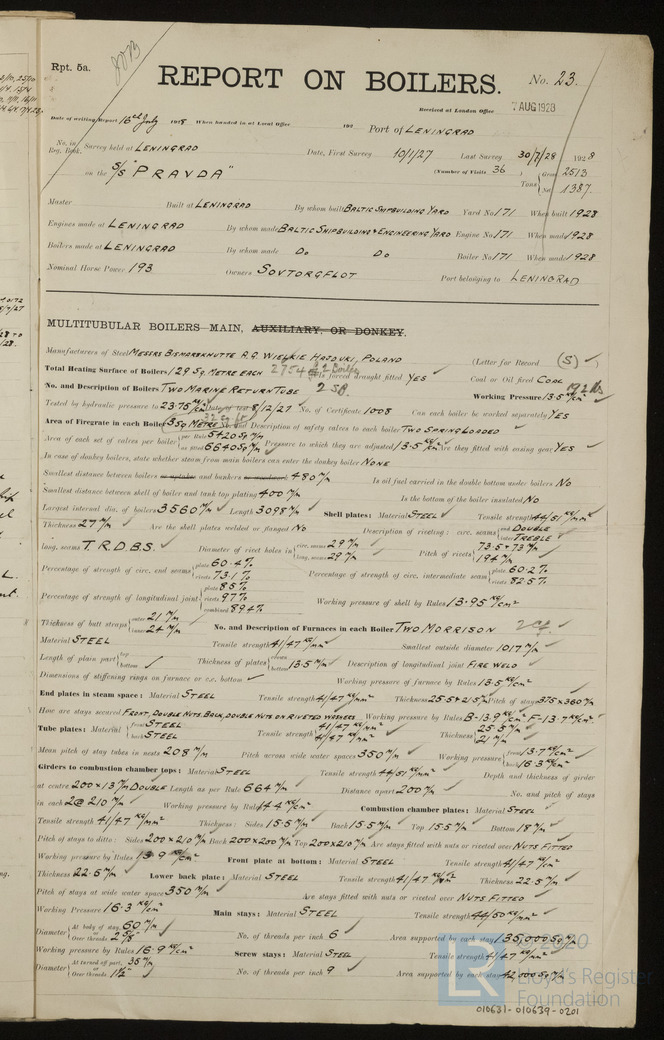 Rpt. 5a.
REPORT ON BOILERS.
No. 23.
Received at London Office 7 AUG 1928
Date of writing Report 16th July 1928 When handed in at Local Office 192 Port of LENINGRAD
No. in Reg. Book. Survey held at LENINGRAD Date, First Survey 10/1/27 Last Survey 30/7/28 1928
on the S/S "PRAVDA" (Number of Visits 36 ) Tons Gross 2513 Net 1387.
Master Built at LENINGRAD By whom built BALTIC SHIPBUILDING YARD Yard No 171 When built 1928
Engines made at LENINGRAD By whom made BALTIC SHIPBUILDING & ENGINEERING YARD Engine No 171 When made 1928
Boilers made at LENINGRAD By whom made Do Do Boiler No 171 When made 1928
Nominal Horse Power 193 Owners SOVTORGFLOT Port belonging to LENINGRAD
MULTITUBULAR BOILERS—MAIN, AUXILIARY, OR DONKEY.
Manufacturers of Steel MESSRS BISMARKHUTTE A.G. WIELKIE HAJDUKI, POLAND (Letter for Record (S) )
Total Heating Surface of Boilers 129 SQ. METRE EACH 2754 2 Boilers Is forced draught fitted YES Coal or Oil fired COAL
No. and Description of Boilers TWO MARINE RETURN TUBE 2 SB. Working Pressure 13.5 KG/CM² 192 lbs
Tested by hydraulic pressure to 23.75 KG/CM² Date of test 8/12/27 No. of Certificate 1008 Can each boiler be worked separately YES
Area of Firegrate in each Boiler 3 SQ METRE No. and Description of safety valves to each boiler TWO SPRING LOADED
Area of each set of valves per boiler per Rule 5420 SQ M/M as fitted 6640 SQ M/M Pressure to which they are adjusted 13.5 KG/CM² Are they fitted with easing gear YES
In case of donkey boilers, state whether steam from main boilers can enter the donkey boiler NONE
Smallest distance between boilers or uptakes and bunkers or woodwork 480 M/M Is oil fuel carried in the double bottom under boilers NO
Smallest distance between shell of boiler and tank top plating 400 M/M Is the bottom of the boiler insulated NO
Largest internal dia. of boilers 3560 M/M Length 3098 M/M Shell plates: Material STEEL Tensile strength 44/51 KG/MM²
Thickness 27 M/M Are the shell plates welded or flanged NO Description of riveting: circ. seams end DOUBLE inter TREBLE
long. seams T.R.D.B.S. Diameter of rivet holes in circ. seams 29 M/M long. seams 29 M/M Pitch of rivets 73.5 & 73 M/M 194 M/M
Percentage of strength of circ. end seams plate 60.4% rivets 73.1% Percentage of strength of circ. intermediate seam plate 60.2% rivets 82.5%
Percentage of strength of longitudinal joint plate 85% rivets 97% combined 89.4% Working pressure of shell by Rules 13.95 KG/CM²
Thickness of butt straps outer 21 M/M inner 24 M/M No. and Description of Furnaces in each Boiler TWO MORRISON 2 cf.
Material STEEL Tensile strength 41/47 KG/MM² Smallest outside diameter 1017 M/M
Length of plain part top bottom Thickness of plates crown bottom 13.5 M/M Description of longitudinal joint FIRE WELD
Dimensions of stiffening rings on furnace or c.c. bottom Working pressure of furnace by Rules 13.5 KG/CM²
End plates in steam space: Material STEEL Tensile strength 41/47 KG/MM² Thickness 25.5 & 21.5 M/M Pitch of stays 375 x 360 M/M
How are stays secured FRONT, DOUBLE NUTS. BACK, DOUBLE NUTS ON RIVETED WASHERS Working pressure by Rules B-13.9 KG/CM² F-13.7 KG/CM²
Tube plates: Material front STEEL back STEEL Tensile strength 41/47 KG/MM² 41/47 KG/MM² Thickness 25.5 M/M 21 M/M
Mean pitch of stay tubes in nests 208 M/M Pitch across wide water spaces 350 M/M Working pressure front 13.7 KG/CM² back 16.3 KG/CM²
Girders to combustion chamber tops: Material STEEL Tensile strength 44/51 KG/MM² Depth and thickness of girder
at centre 200 x 13 M/M DOUBLE Length as per Rule 664 M/M Distance apart 200 M/M No. and pitch of stays
in each 2 @ 210 M/M Working pressure by Rules 14.4 KG/CM² Combustion chamber plates: Material STEEL
Tensile strength 41/47 KG/MM² Thickness: Sides 15.5 M/M Back 15.5 M/M Top 15.5 M/M Bottom 18 M/M
Pitch of stays to ditto: Sides 200 x 210 M/M Back 200 x 200 M/M Top 200 x 210 M/M Are stays fitted with nuts or riveted over NUTS FITTED
Working pressure by Rules 13.9 KG/CM² Front plate at bottom: Material STEEL Tensile strength 41/47 KG/CM²
Thickness 22.5 M/M Lower back plate: Material STEEL Tensile strength 41/47 KG/CM² Thickness 22.5 M/M
Pitch of stays at wide water space 350 M/M Are stays fitted with nuts or riveted over NUTS FITTED
Working Pressure 16.3 KG/CM² Main stays: Material STEEL Tensile strength 44/50 KG/MM²
Diameter At body of stay, 60 M/M or Over threads No. of threads per inch 6 Area supported by each stay 135,000 SQ M/M
Working pressure by Rules 16.9 KG/CM² Screw stays: Material STEEL Tensile strength 41/47 KG/MM²
Diameter At turned off part, 35 M/M or Over threads 1½ No. of threads per inch 9 Area supported by each stay 42,000 SQ M/M
© 2020
LR Lloyd's Register Foundation
010631-010639-0201